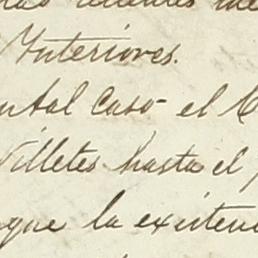 Interiores.
tal caso el
Villetes hasta el
que la existen